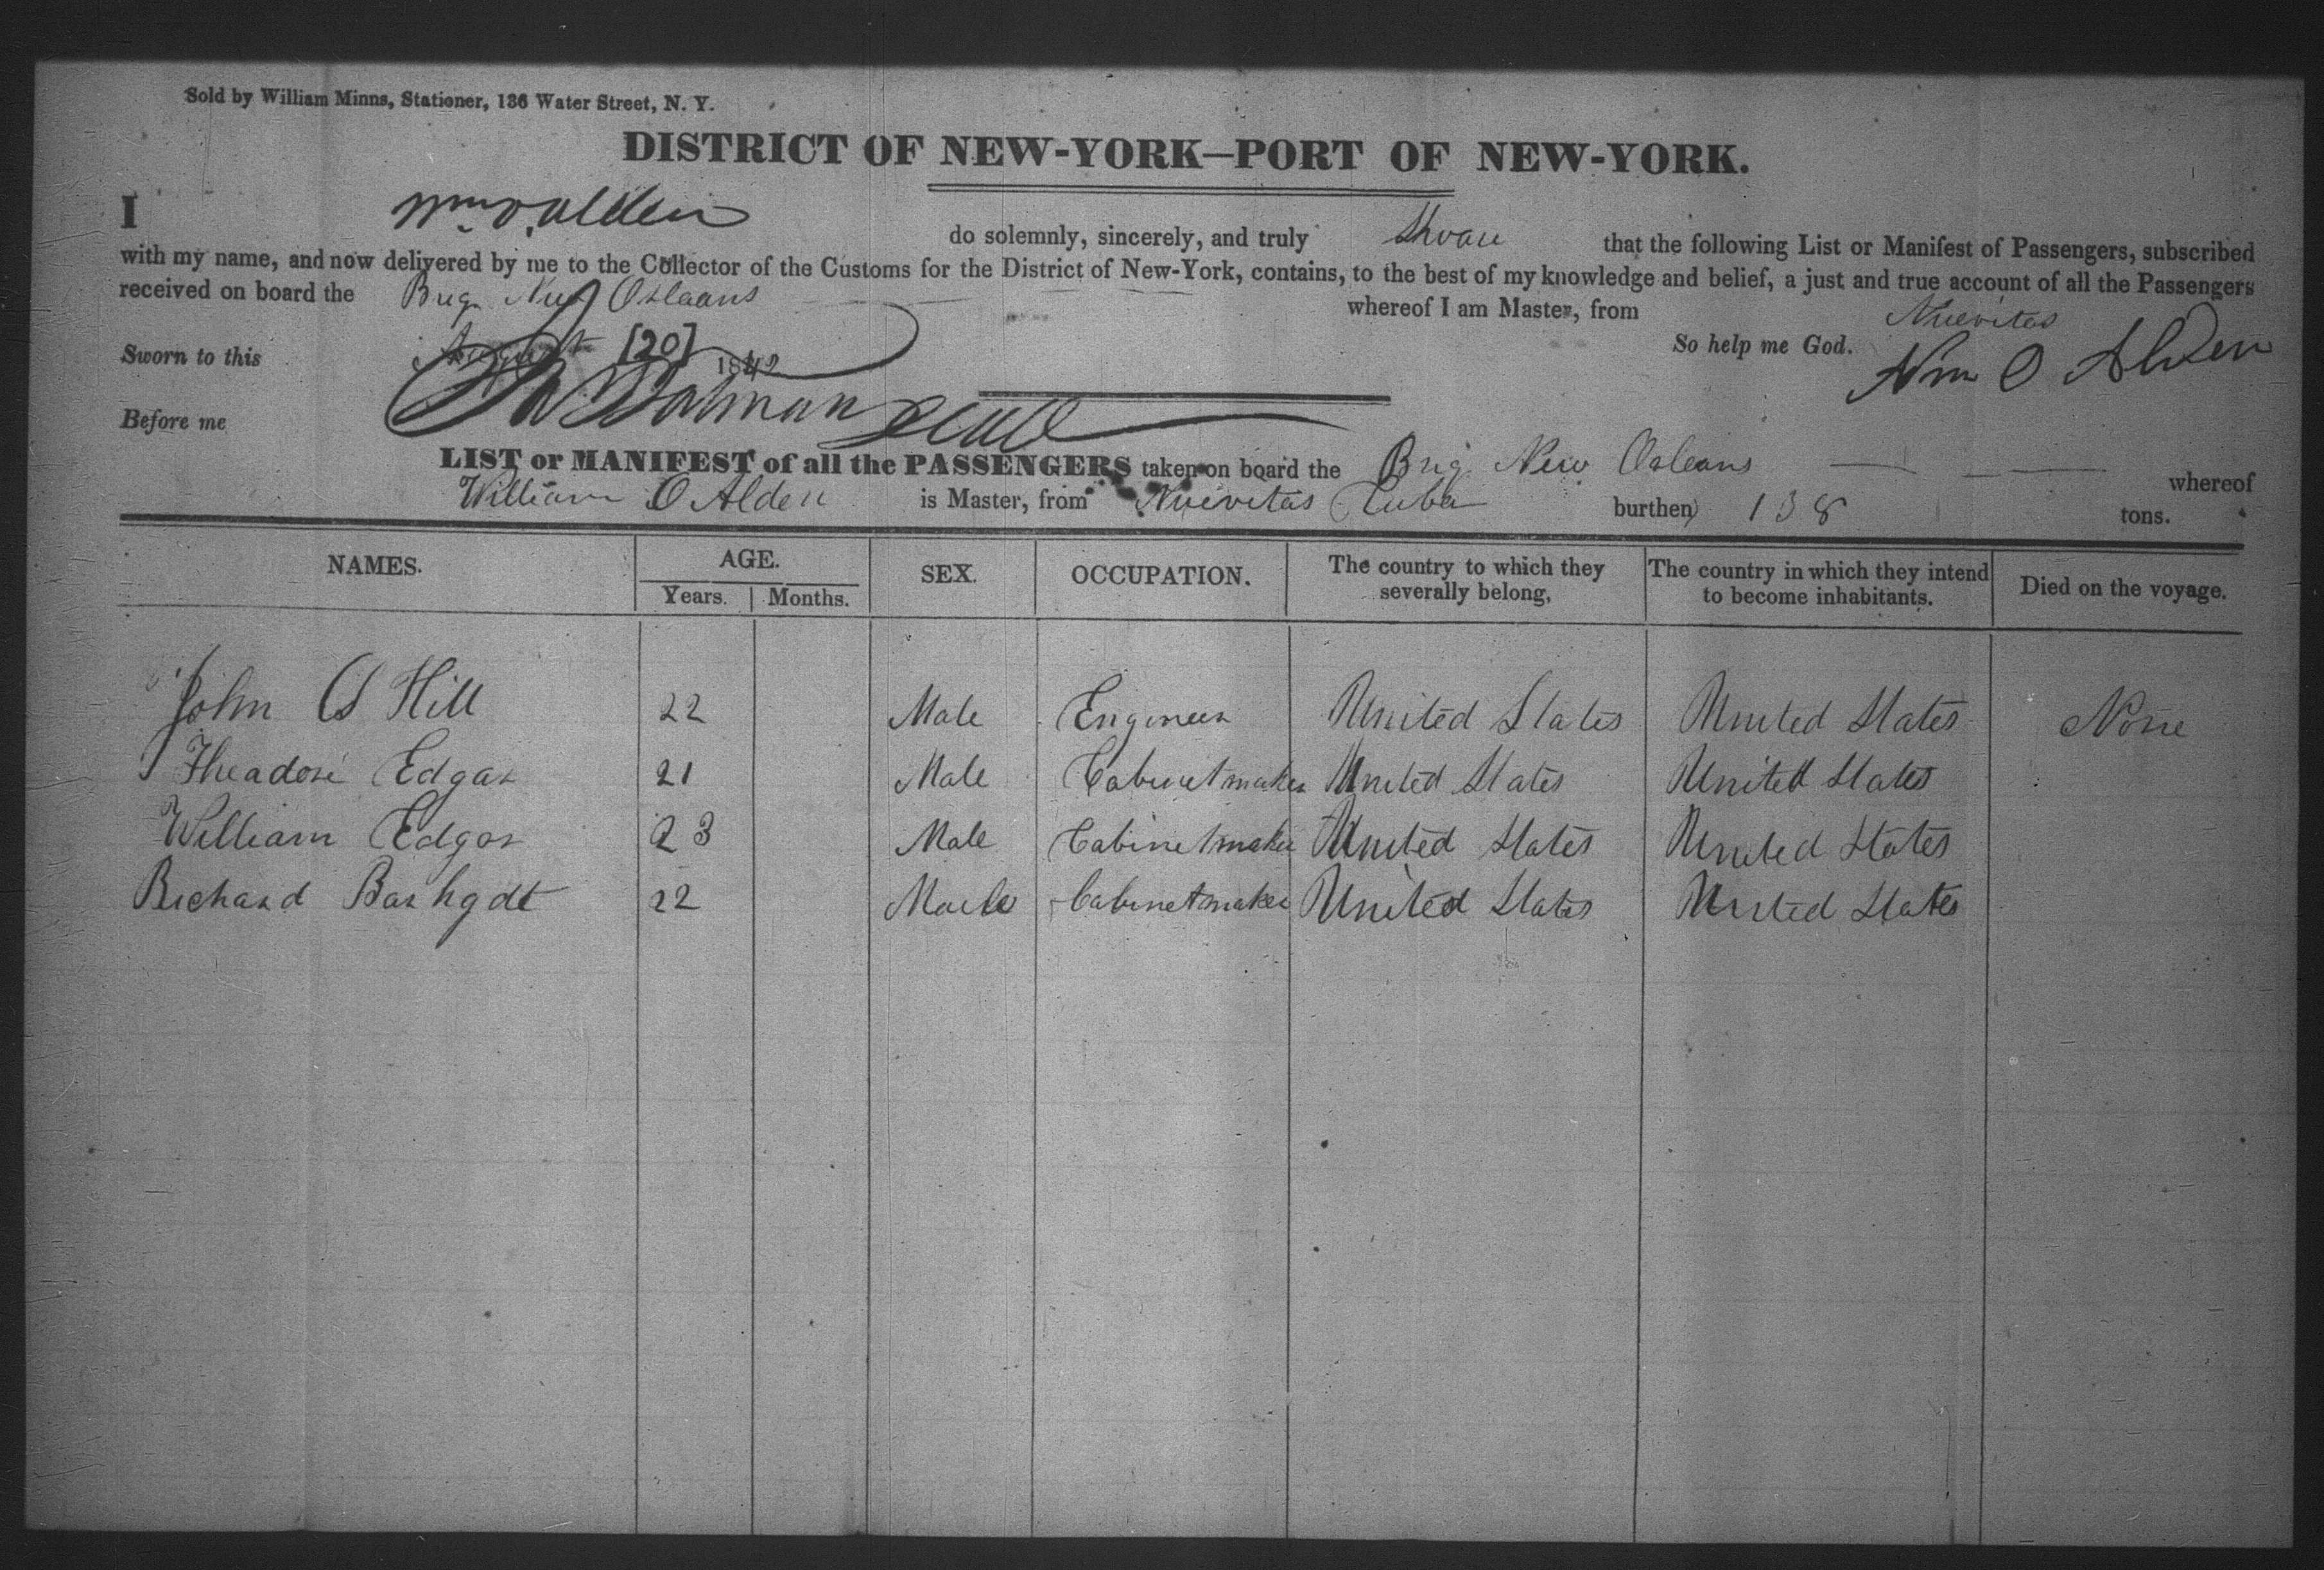 Sold by William Minns, Stationer, 136 Water Street, N. Y.
DISTRICT OF NEW-YORK—PORT OF NEW-YORK.
I Wm O. Alden do solemnly, sincerely, and truly Swear that the following List or Manifest of Passengers, subscribed
with my name, and now delivered by me to the Collector of the Customs for the District of New-York, contains, to the best of my knowledge and belief, a just and true account of all the Passengers
received on board the Brig New Orleans whereof I am Master, from Nuevitas
Sworn to this August [20] 1842 So help me God. Wm O Alden
Before me
LIST or MANIFEST of all the PASSENGERS taken on board the Brig New Orleans whereof
William O Alden is Master, from Nuevitas Cuba burthen, 138 tons.
NAMES. AGE. Years. Months. SEX. OCCUPATION. The country to which they severally belong, The country in which they intend to become inhabitants. Died on the voyage.
John Hill 22 Male Engineer United States United States None
Theadore Edgar 21 Male Cabinetmaker United States United States
William Edgar 23 Male Cabinetmaker United States United States
Richard 22 Male Cabinetmaker United States United States